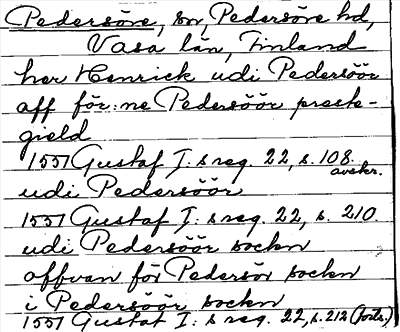 Pedersöre, sn, Pedersöre hd,
Vasa län, Finland
her Henrick udi Pedersöör
aff för:ne Pedersöör preste-
gield
1551 Gustaf I:s reg. 22, s. 108.
avskr.
udi Pedersöör
1551 Gustaf I:s reg. 22, s. 210
udi Pedersöör sockn
offvan för Pedersör sockn
i Pedersöör sockn
1551 Gustaf I:s reg. 22, s. 212 (forts.)